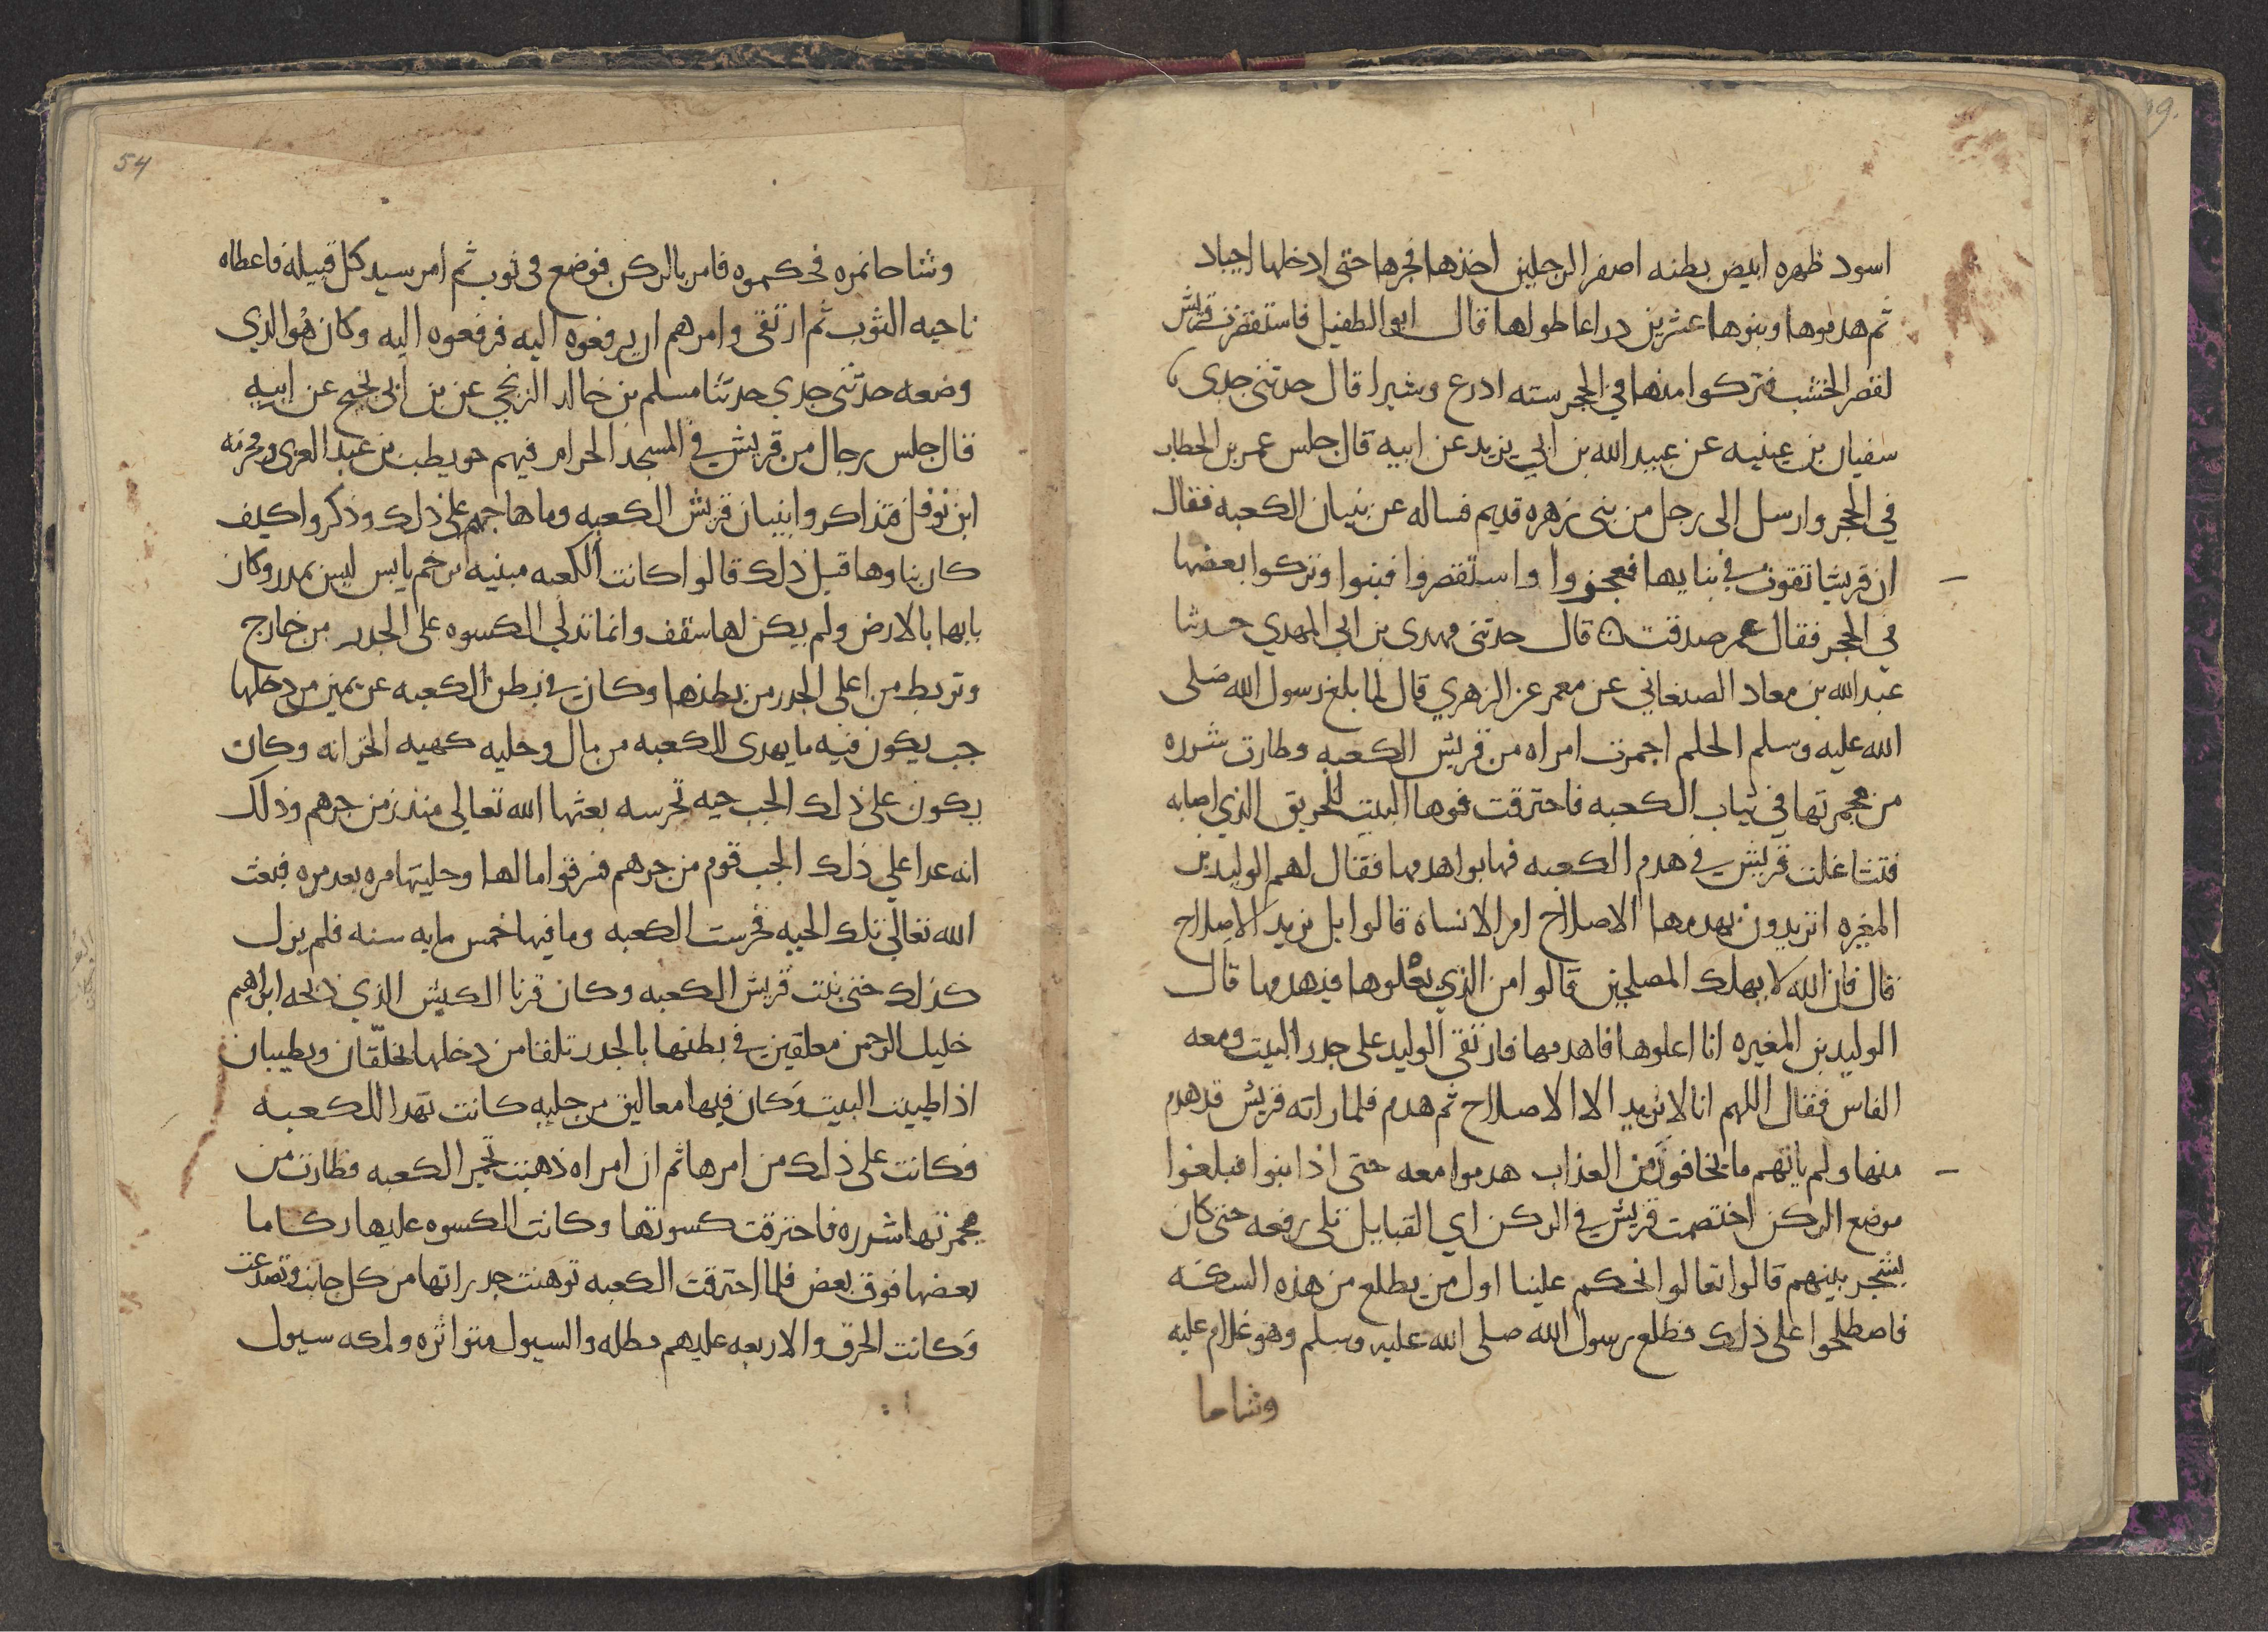 اسود ظهره ابيض بطنه اصفر الرجلين اخذها فجرها حتى ادخلها اجياد
ثم هدموها وبنوها عشرين دراعا طولها قال ابو الطفيل فاستقصرت قريش
لقصر الخشب فتركوا منها في الحجر سته ادرع وشبرا قال حدثنى جدى
سفيان بن عيينه عن عبيد الله بن ابي يزيد عن ابيه قال جلس عمر بن الخطاب
في الحجر وارسل الى رجل من بنى زهره قديم فساله عن بنيان الكعبه فقال
ان قريشا تقوت في بنايها فعجزوا واستقصروا فبنوا وتركوا بعضها
في الحجر فقال عمر صدقت ه قال حدثنى مهدى بن ابي المهدي حدثنا
عبد الله بن معاد الصنعاني عن معمر عن الزهري قال لما بلغ رسول الله صلى
الله عليه وسلم الحلم اجمرت امراه من قريش الكعبه وطارت شرره
من مجمرتها في ثياب الكعبه فاحترقت فوها البيت للحريق الذي اصابه
فتشاغلت قريش في هدم الكعبه فهابوا هدمها فقال لهم الوليد بن
المغيره اتريدون بهدمها الاصلاح ام الانساة قالوا بل نريد الاصلاح
قال فان الله لا يهلك المصلحين قالوا من الذي يعلوها فيهدمها قال
الوليد بن المغيره انا اعلوها فاهدمها فارتقى الوليد على جدر البيت ومعه
الفاس فقال اللهم انا لا نريد الا الاصلاح ثم هدم فلما راته قريش قد هدم
منها ولم ياتهم ما يخافون من العذاب هدموا معه حتى اذا بنوا فبلغوا
موضع الركن اختصمت قريش في الركن اي القبايل تلى رفعه حتى كان
يشجر بينهم قالوا تعالوا نحكم علينا اول من يطلع من هذه السكه
فاصطلحوا على ذلك فطلع رسول الله صلى الله عليه وسلم وهو غلام عليه
وشاحا
54
وشاحا نمره فحكموه فامر بالركن فوضع في ثوب ثم امر سيد كل قبيله فاعطاه
ناحيه الثوب ثم ارتقى وامرهم ان يرفعوه اليه فرفعوه اليه وكان هو الذي
وضعه حدثنى جدي حدثنا مسلم بن خالد الزنجي عن بن ابى نجيح عن ابيه
قال جلس رجال من قريش في المسجد الحرام فيهم حويطب بن عبد العزى ومخرمه
ابن نوفل فتذاكروا بنيان قريش الكعبه وما هاجهم على ذلك وذكروا كيف
كان بناوها قبل ذلك قالوا كانت الكعبه مبنيه من رضم يابس ليس بمدر وكان
بابها بالارض ولم يكن لها سقف وانما تدلي الكسوه على الجدر من خارج
وتربط من اعلى الجدر من بطنها وكان في بطن الكعبه عن يمين من دخلها
جب يكون فيه ما يهدى للكعبه من مال وحليه كهيه الخزانه وكان
يكون على ذلك الجب حيه تحرسه بعثها الله تعالى منذ زمن جرهم وذلك
انه عدا على ذلك الجب قوم من جرهم فسرقوا مالها وحليتها مره بعد مره فبعث
الله تعالى تلك الحيه فحرست الكعبه وما فيها خمس مايه سنه فلم يزل
كذلك حتى بنت قريش الكعبه وكان قرنا الكبش الذي ذبحه ابراهيم
خليل الرحمن معلقين في بطنها بالجدر تلقا من دخلها يخلّقان ويطيبان
اذا طيب البيت وكان فيها معاليق من حليه كانت تهدا للكعبه
فكانت على ذلك من امرها ثم ان امراه ذهبت تجمر الكعبه فطارت من
مجمرتها شرره فاحترقت كسوتها وكانت الكسوه عليها ركاما
بعضها فوق بعض فلما احترقت الكعبه توهنت جدراتها من كل جانب وتصدعت
وكانت الخرق والاربعه عليهم مطله والسيول متواتره ولمكه سيول